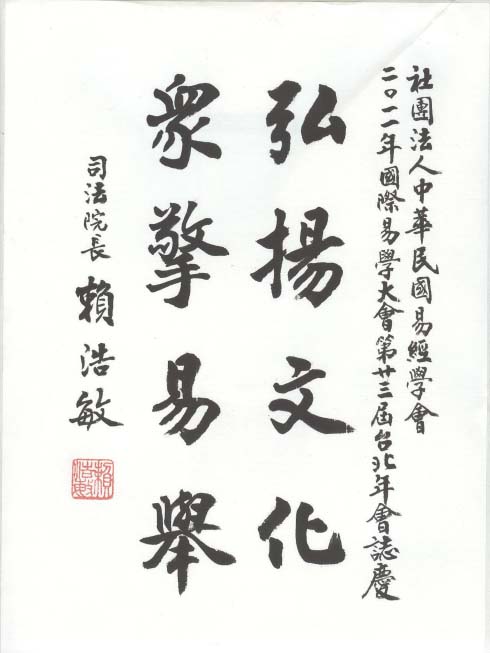 社團法人中華民國易經學會
二○一一年國際易學大會第廿三屆台北年會誌慶
弘揚文化
衆擎易舉
司法院長 賴浩敏
賴浩敏